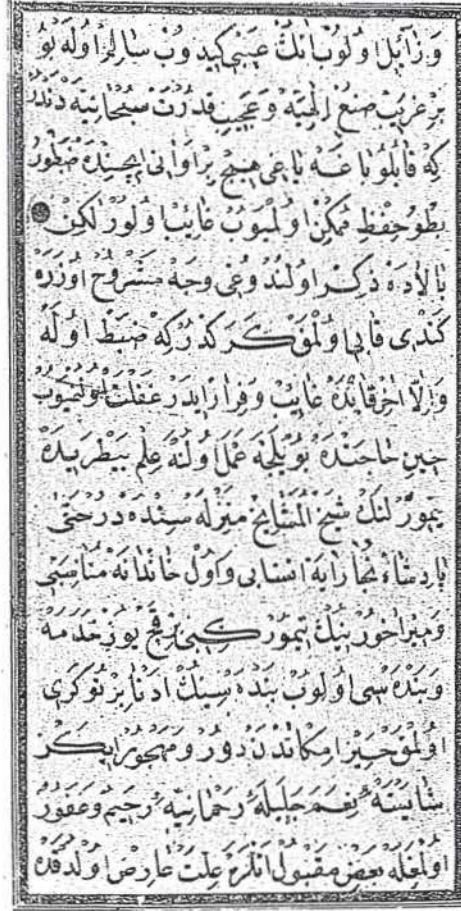 وزائل اولوب انك عيبى كيدوب سالم اوله بو
بر غريب صنع الهيه وعجيب قدرت سبحانيه دندر
كه قابلو باغه ياغى هيچ بر اوانى ايچنده ضطور
بطور حفظ ممكن اولميوب غايب اولور لكن
بالاده ذكر اولندوغى وجه مشروح اوزره
كندى قابى اولمق كركدركه ضبط اوله
والا اخر قابده غايب وفرار ايدر غفلت اولنميوب
حين حاجتده بويلجه عمل اولنه علم بيطريده
تيمور لنك شيخ المشايخ منزله سنده در حتى
پادشاه بخارايه انتسابى واول خاندانه مناسبتى
وميراخور بيك تيمور كبى نيچه يوز خدمه
وبنده سى اولوب بنده سينك ادنا بر نوكرى
اولمق حيز امكاندن دور ومهجور ايكن
شايسته نعم جليله رحمانيه رحيم وغفور
اولمغله بعض مقبول اتلره علت عارض اولدقده